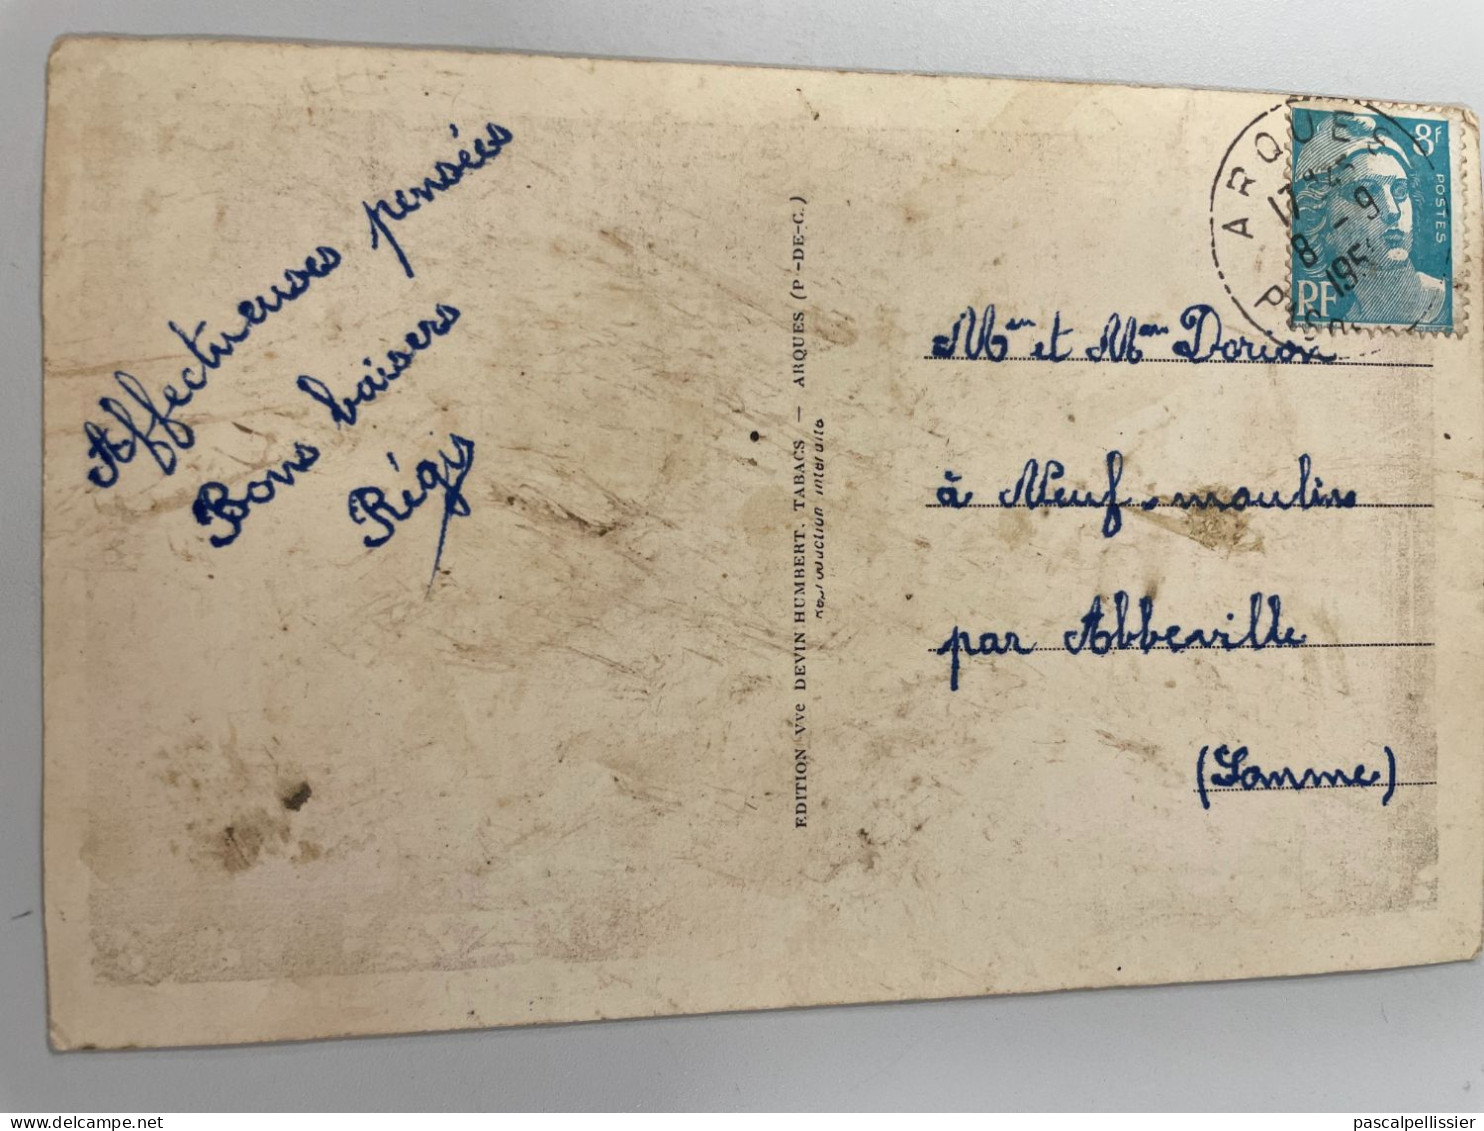 Affectueuses pensées
Bons baisers
Régis
EDITION Vve DEVIN HUMBERT. TABACS — ARQUES (P-DE-C.)
Reproduction interdite
ARQUES
8 - 9
8F
POSTES
RF
Mr et Mme Dorion
à Neuf-moulin
par Abbeville
(Somme)
pascalpellissier